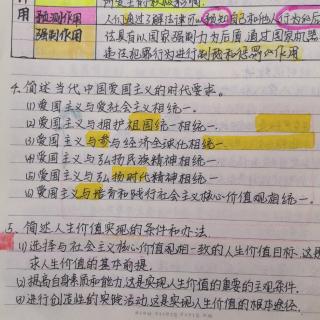 用
预测作用
人们通过了解法律可以预知自己和他人行为的后
强制作用
法具有以国家强制力为后盾,通过国家机器
违法犯罪行为进行制裁和惩罚的作用
4.简述当代中国爱国主义的时代要求。
(1)爱国主义与爱社会主义相统一。
(2)爱国主义与拥护祖国统一相统一.
(3)爱国主义与参与经济全球化相统一.
(4)爱国主义与弘扬民族精神相统一.
(5)爱国主义与弘扬时代精神相统一
(6)爱国主义与培育和践行社会主义核心价值观相统一。
5.简述人生价值实现的条件和办法.
(1)选择与社会主义核心价值观相一致的人生价值目标.这是
求人生价值的基本前提.
(2)提高自身素质和能力这是实现人生价值的重要的主观条件.
(3)进行创造性的实践活动.这是实现人生价值的根本途径.